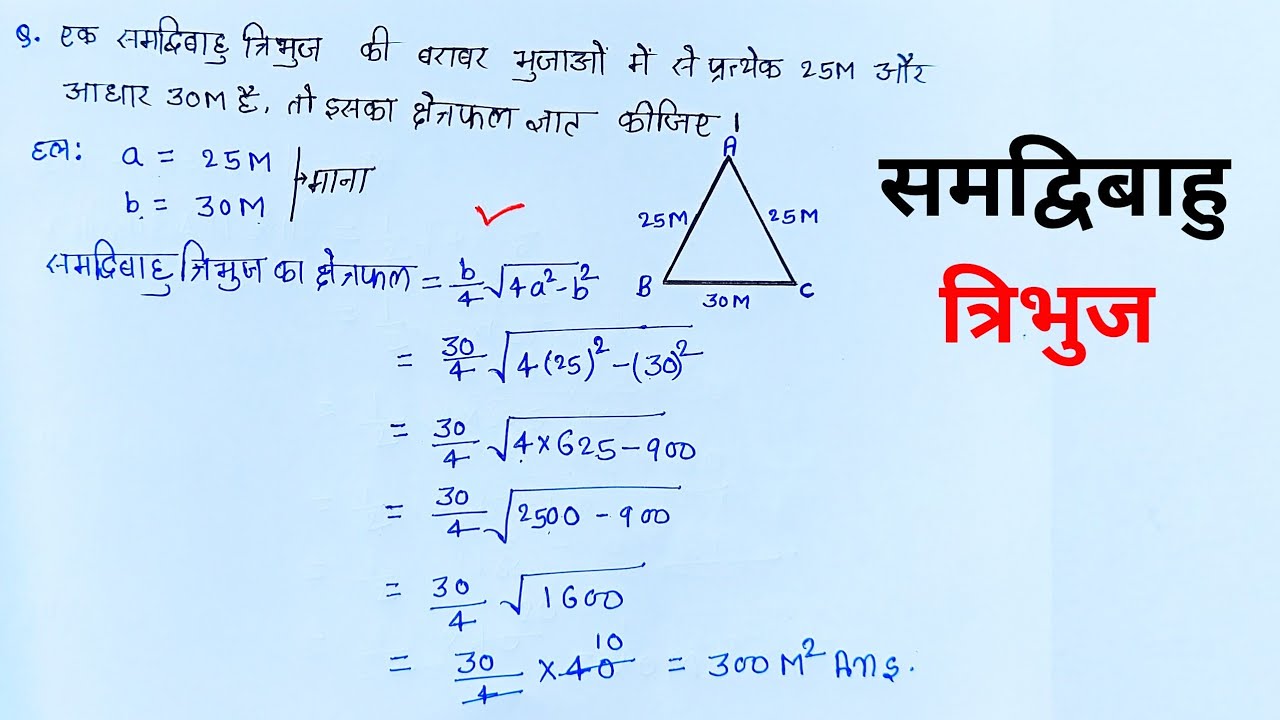 Q. एक समद्विबाहु त्रिभुज की बराबर भुजाओं में से प्रत्येक 25M और
आधार 30M है, तो इसका क्षेत्रफल ज्ञात कीजिए।
हल: a = 25M
b = 30M
माना
A
25M
25M
B
30M
C
समद्विबाहु त्रिभुज का क्षेत्रफल = b/4 √4a²-b²
= 30/4 √4(25)²-(30)²
= 30/4 √4×625-900
= 30/4 √2500-900
= 30/4 √1600
= 30/4 × 40 10 = 300M² Ans.
समद्विबाहु
त्रिभुज